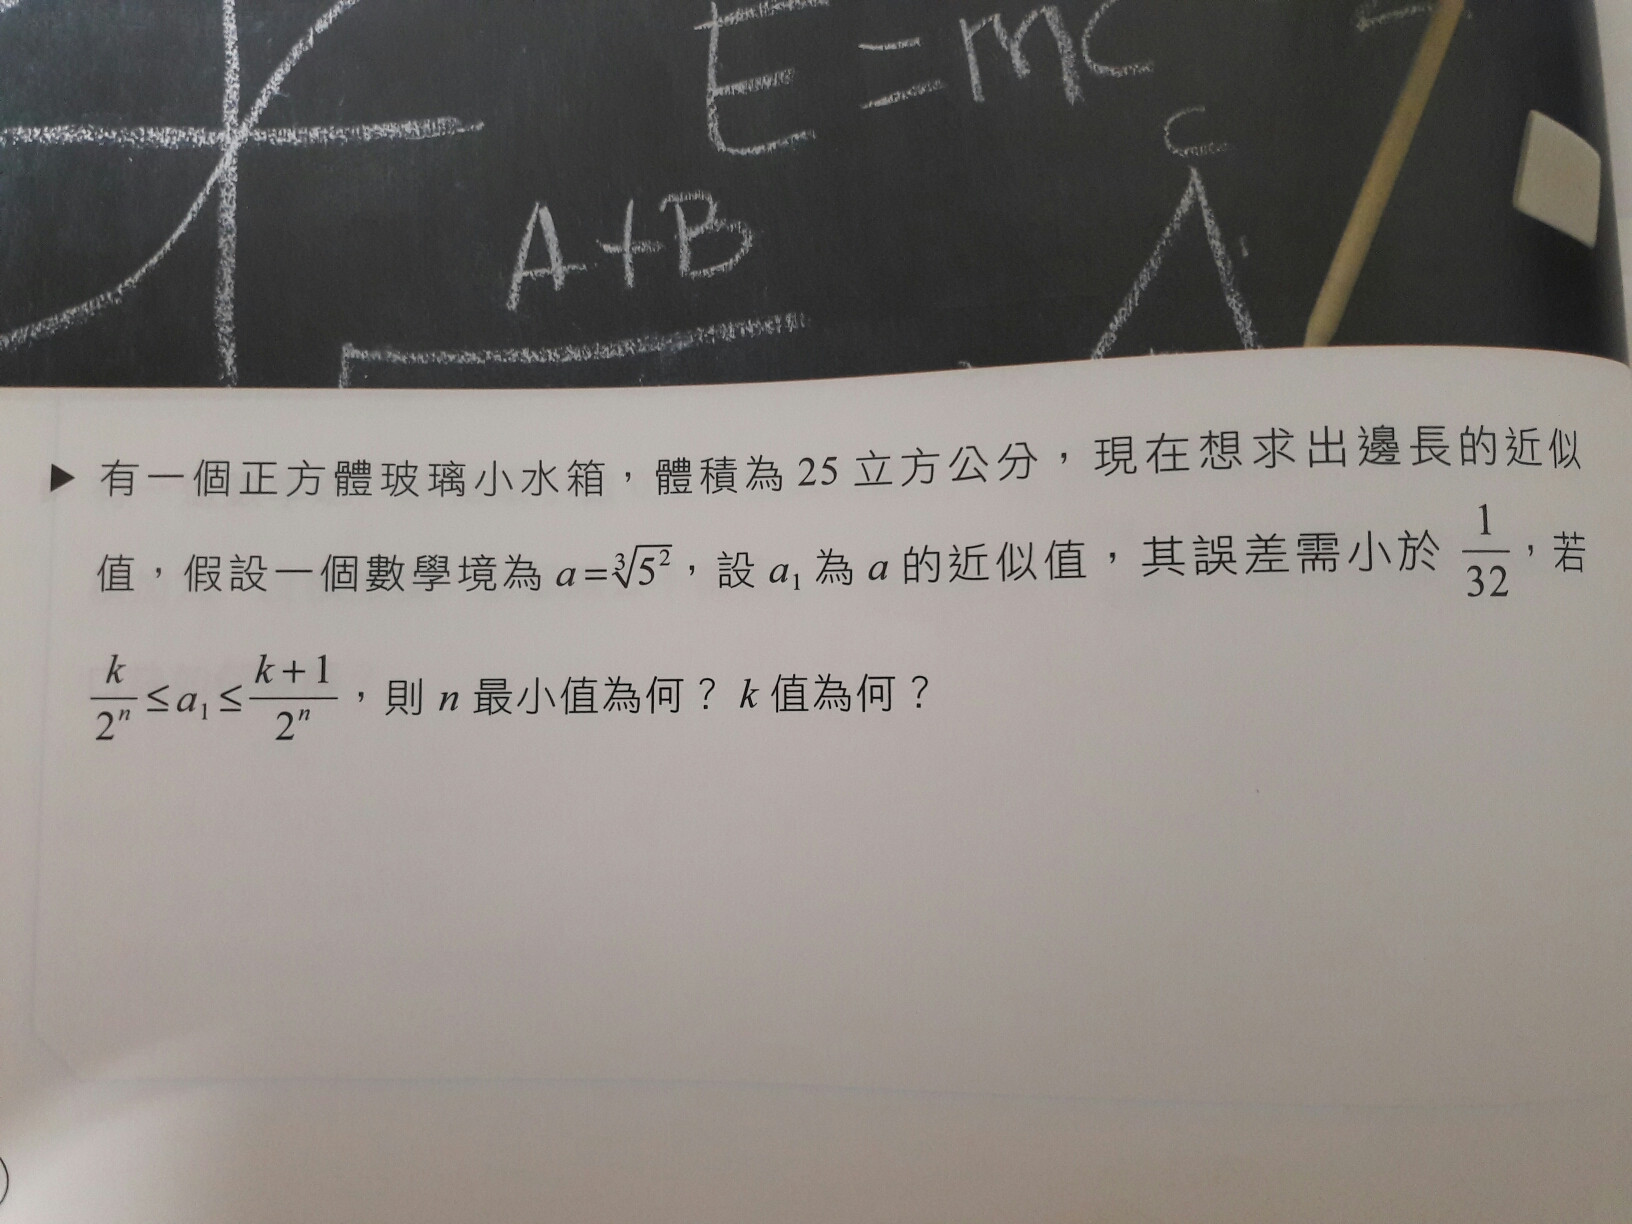 E=mc
C
A+B
▶ 有一個正方體玻璃小水箱，體積為 25 立方公分，現在想求出邊長的近似
值，假設一個數學境為 a=∛5²，設 a₁ 為 a 的近似值，其誤差需小於 1/32，若
k/2ⁿ ≤ a₁ ≤ (k+1)/2ⁿ，則 n 最小值為何？ k 值為何？